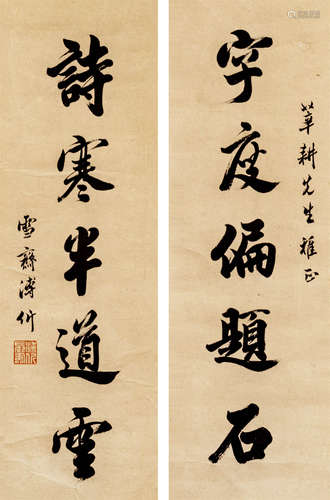 耕先生雅正
字度偏題石
詩寒半道雲
雪齋溥伒